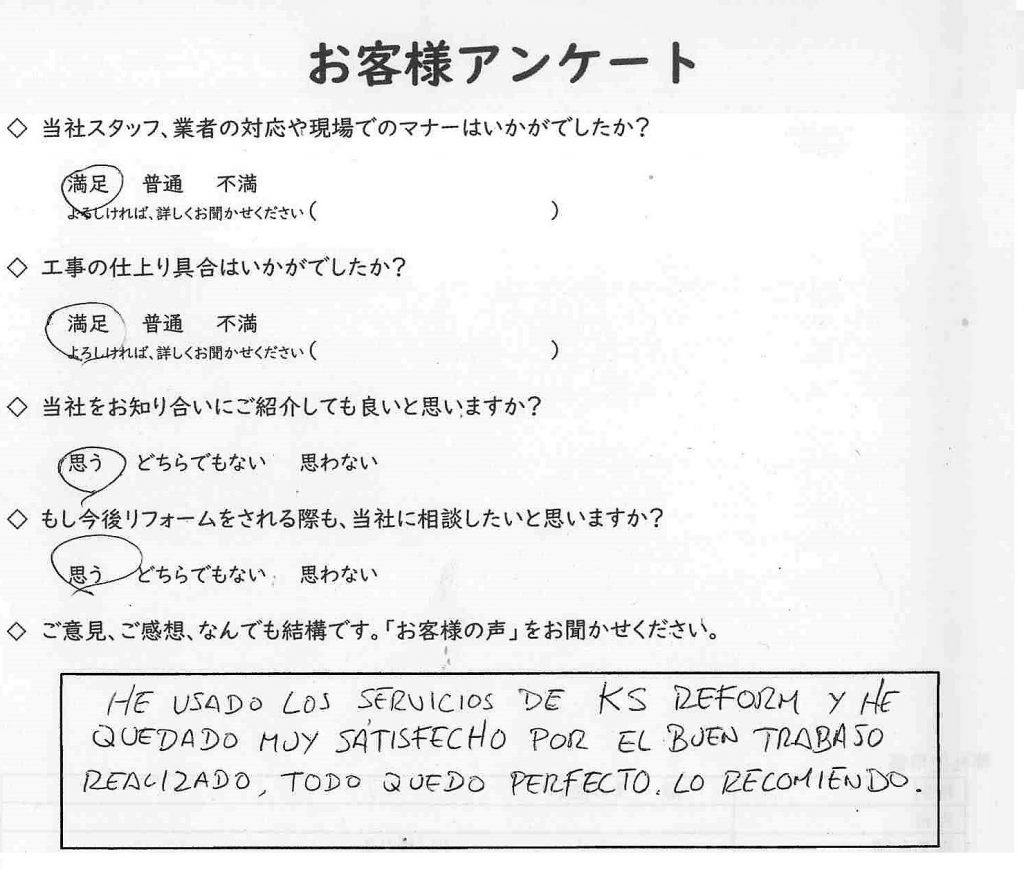 お客様アンケート
◇ 当社スタッフ、業者の対応や現場でのマナーはいかがでしたか?
満足 普通 不満
よろしければ、詳しくお聞かせください( )
◇ 工事の仕上り具合はいかがでしたか?
満足 普通 不満
よろしければ、詳しくお聞かせください( )
◇ 当社をお知り合いにご紹介しても良いと思いますか?
思う どちらでもない 思わない
◇ もし今後リフォームをされる際も、当社に相談したいと思いますか?
思う どちらでもない 思わない
◇ ご意見、ご感想、なんでも結構です。「お客様の声」をお聞かせください。
HE USADO LOS SERVICIOS DE KS REFORM Y HE
QUEDADO MUY SATISFECHO POR EL BUEN TRABAJO
REALIZADO, TODO QUEDO PERFECTO. LO RECOMIENDO.